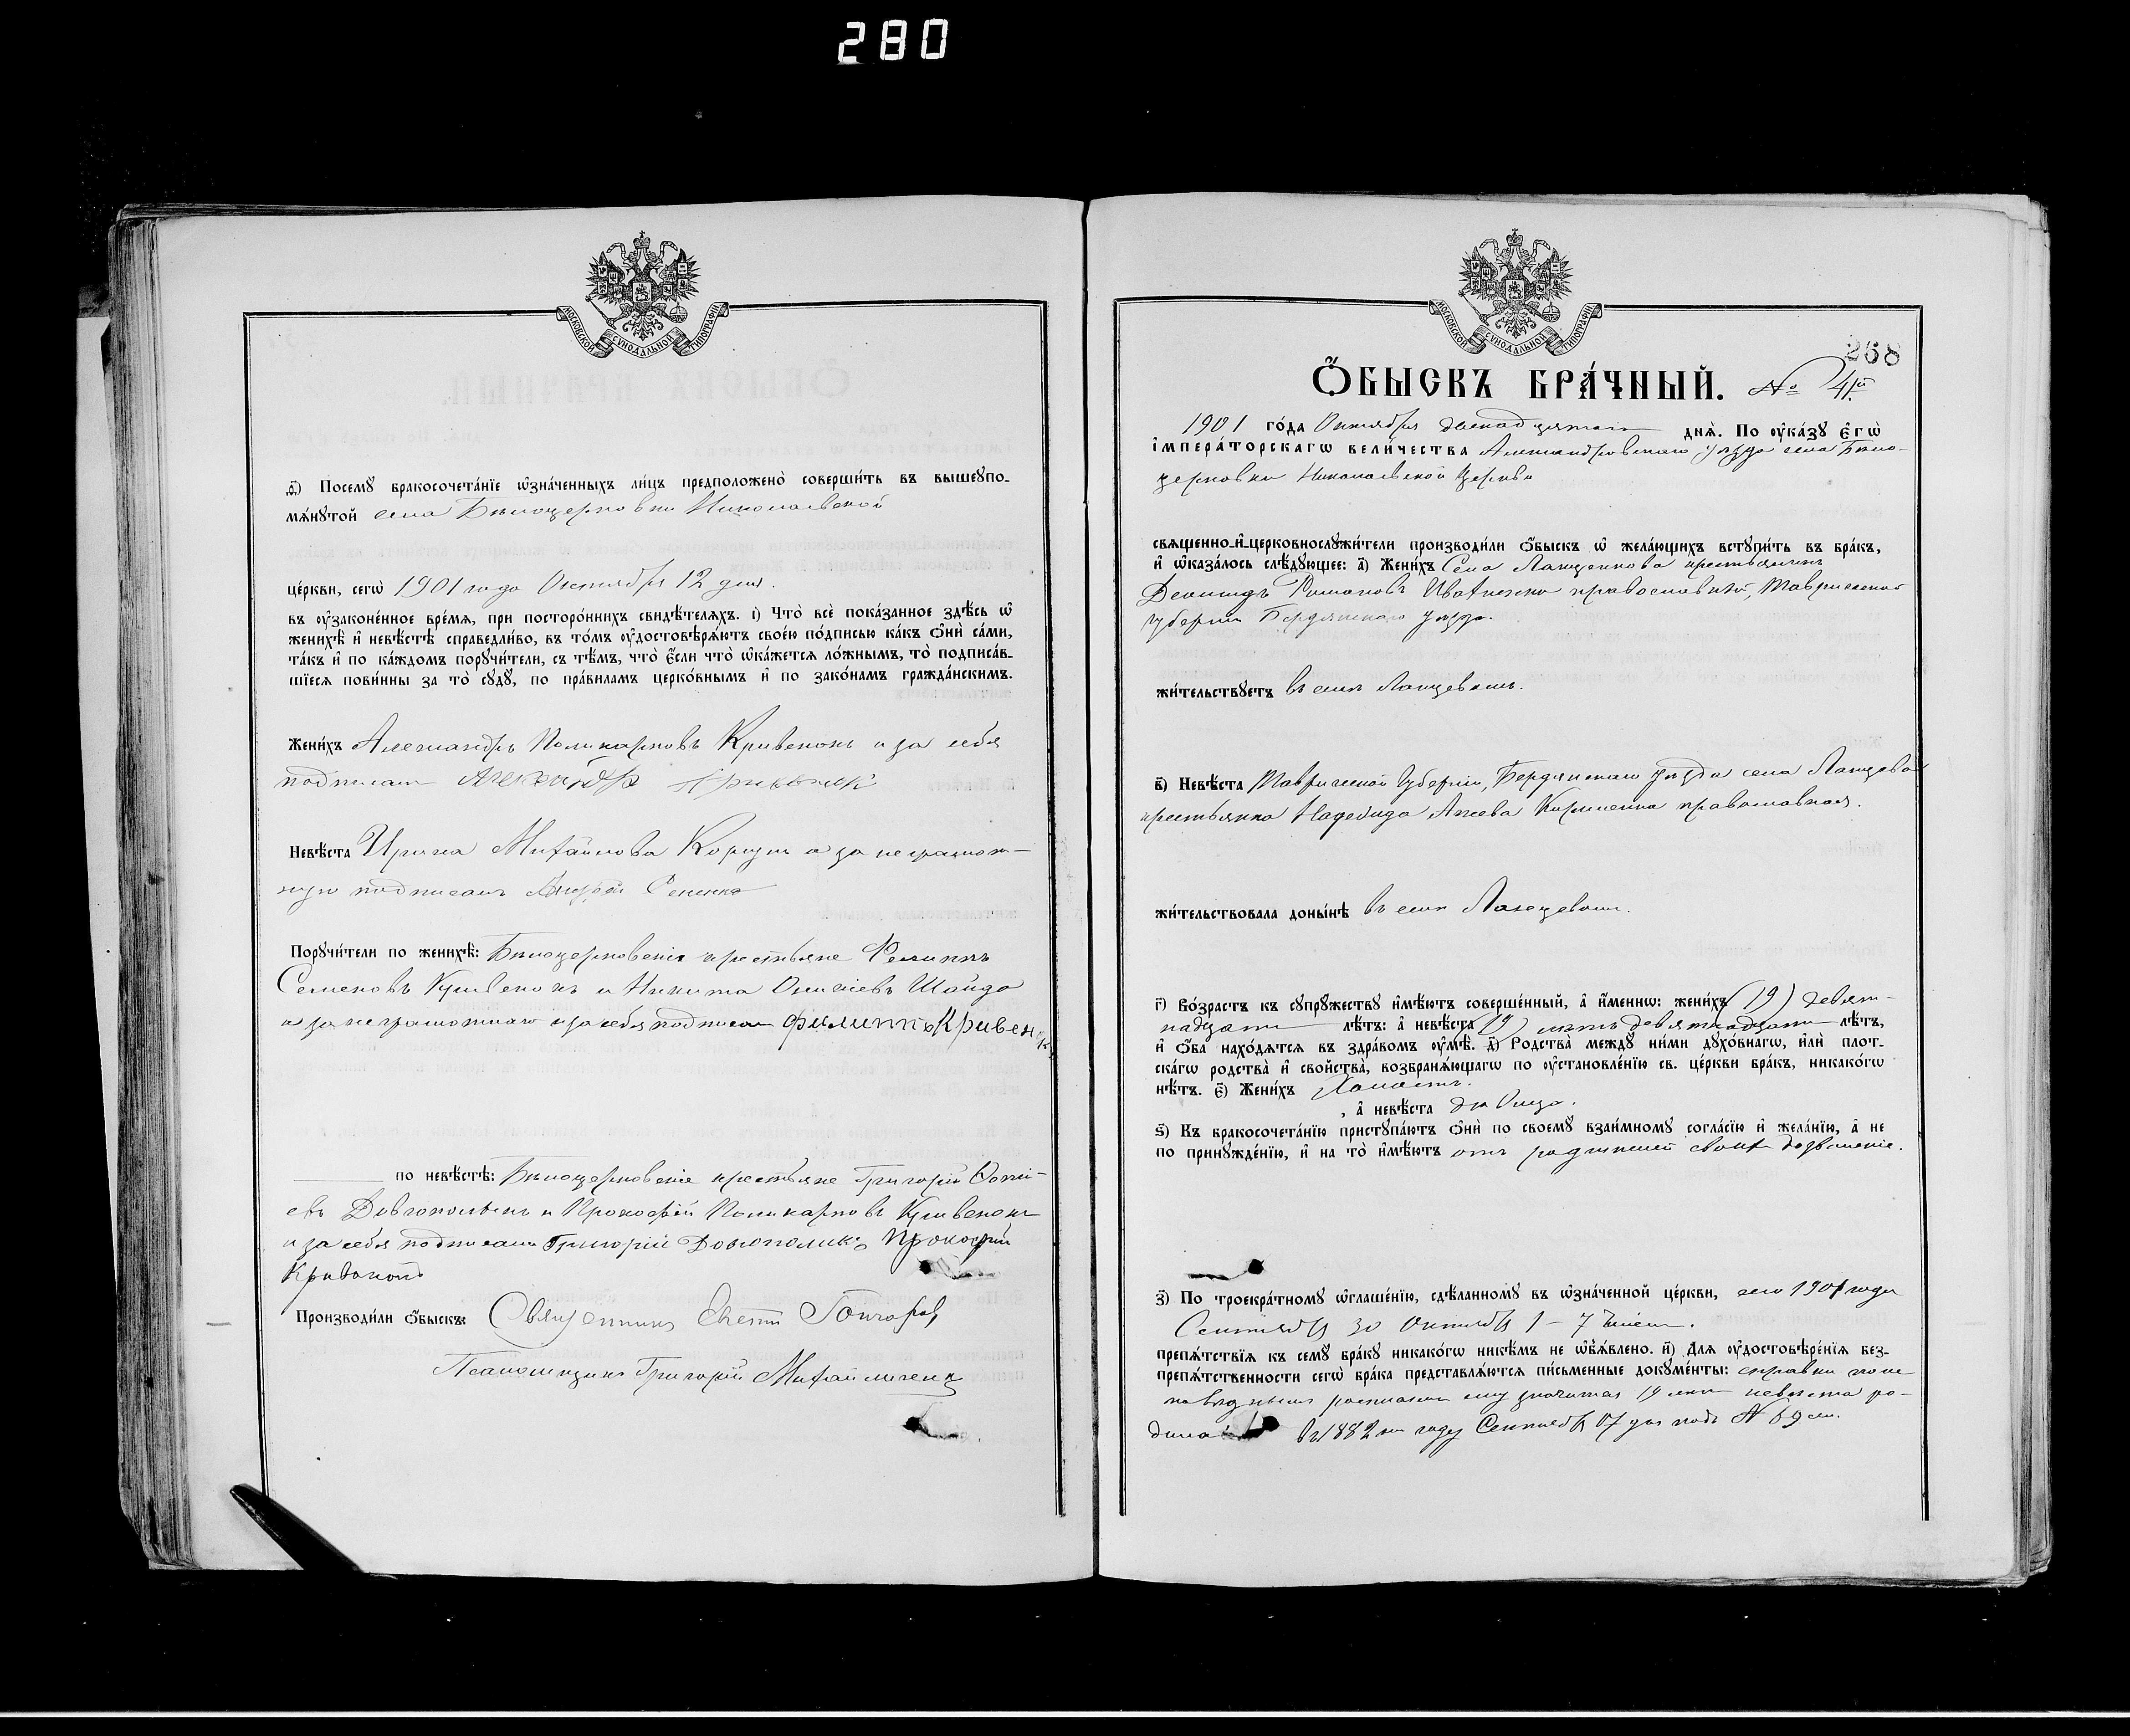 280
МОСКОВСКОЙ СѴНОДАЛЬНОЙ ТИПОГРАФІИ
ѳ҃) Посемꙋ бракосочета́нїе ѡ҆зна́ченныхъ ли́цъ предположено̀ соверши́ть въ вышеꙋпо-
мѧ́нꙋтой села Бѣлоцерковки Николаевской
це́ркви, сегѡ̀ 1901 года Октября 12 дня.
въ ᲂу҆зако́ненное вре́мѧ, при посторо́ннихъ свидѣ́телѧхъ. і҃) Что̀ всѐ пока́занное здѣ́сь ѡ҆
женихѣ̀ и҆ невѣ́стѣ справедли́во, въ то́мъ ᲂу҆достовѣрѧ́ютъ свое́ю по́дписью ка́къ ѻ҆нѝ са́ми,
та́къ и҆ по ка́ждомъ порꙋчи́тели, съ тѣ́мъ, что̀ є҆́сли что̀ ѡ҆ка́жетсѧ ло́жнымъ, то̀ подписа́в-
шїесѧ пови́нны за то̀ сꙋдꙋ̀, по пра́виламъ церко́внымъ и҆ по зако́намъ гражда́нскимъ.
Жени́хъ Александръ Поликарповъ Кривенокъ и за себя
подписалъ Александръ Кривенокъ
Невѣ́ста Ирина Михайлова Коржъ а за неграмот-
ную подписалъ Андрей
Порꙋчи́тели по женихѣ̀: Бѣлоцерковскіе крестьяне Филиппъ
Семеновъ Кривенокъ и Никита Шайда
и за неграмотнаго и за себя подписалъ Филиппъ Кривенокъ
по невѣ́стѣ: Бѣлоцерковскіе крестьяне Григорій
евъ Довгополикъ и Прокофій Поликарповъ Кривенокъ
и за себя подписали Григорій Довгополикъ Прокофій
Кривонокъ
Производи́ли ѻ҆́быскъ: Священникъ Гончаровъ
Псаломщикъ Григорій Михайличенко
МОСКОВСКОЙ СѴНОДАЛЬНОЙ ТИПОГРАФІИ
268
Ѻ҆́быскъ бра́чный. № 41й.
1901 го́да Октября двенадцатаго днѧ̀. По ᲂу҆ка́зꙋ Є҆гѡ̀
І҆мпера́торскагѡ Вели́чества Александровскаго уѣзда села Бѣло-
церковки Николаевской Церкви
свѧщенно-и҆-церковнослꙋжи́тели производи́ли ѻ҆́быскъ ѡ҆ жела́ющихъ встꙋпи́ть въ бра́къ,
и҆ ѡ҆каза́лось слѣ́дꙋющее: а҃) Жени́хъ Села крестьянинъ
Романовъ Ивахненко православный, Таврической
губерніи Бердянскаго уѣзда.
жи́тельствꙋетъ въ селѣ
в҃) Невѣ́ста Таврической Губерніи, Бердянскаго уѣзда села
крестьянка Надежда Кириленко православная.
жи́тельствовала доны́нѣ въ селѣ
г҃) Во́зрастъ къ сꙋпрꙋ́жествꙋ и҆мѣ́ютъ соверше́нный, а҆ и҆́меннѡ: жени́хъ (19) девят-
надцати лѣ́тъ: а҆ невѣ́ста (19) лѣтъ девятнадцати лѣ́тъ,
и҆ ѻ҆́ба нахо́дѧтсѧ въ здра́вомъ ᲂу҆мѣ̀. д҃) Родства̀ междꙋ̀ ни́ми дꙋхо́внагѡ, и҆лѝ плот-
ска́гѡ родства̀ и҆ сво́йства, возбранѧ́ющагѡ по ᲂу҆становле́нїю св. це́ркви бра́къ, никако́гѡ
нѣ́тъ. є҃) Жени́хъ Холостъ.
, а҆ невѣ́ста дѣвица.
ѕ҃) Къ бракосочета́нїю пристꙋпа́ютъ ѻ҆нѝ по своемꙋ̀ взаи́мномꙋ согла́сїю и҆ жела́нїю, а҆ не
по принꙋжде́нїю, и҆ на то̀ и҆мѣ́ютъ отъ родителей своихъ дозволеніе.
з҃) По троекра́тномꙋ ѡ҆глаше́нїю, сдѣ́ланномꙋ въ ѡ҆зна́ченной це́ркви, сего 1901 года
Сентября 30 Октября 1 – 7 чиселъ.
препѧ́тствїѧ къ семꙋ̀ бра́кꙋ никако́гѡ никѣ́мъ не ѡ҆б̾ѧ́влено. и҃) Длѧ ᲂу҆достовѣре́нїѧ без-
препѧ́тственности сегѡ̀ бра́ка представлѧ́ютсѧ пи́сьменные докꙋме́нты: справки
росписямъ ему значится 19 лѣтъ невѣста ро-
дилась въ 1882 году Сентября 17 дня подъ № 69